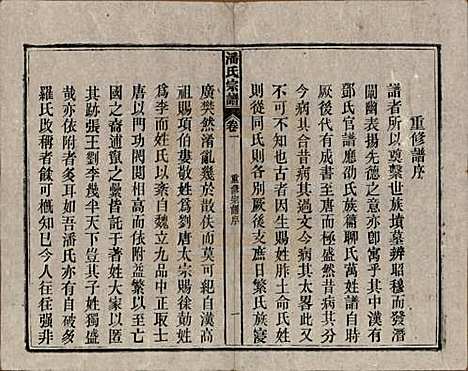 重修譜序
譜者所以奠繫世族墳墓辨昭穆而發潛
闡幽表揚先德之意亦卽寓乎其中漢有
鄧氏官譜應劭氏族篇聊氏萬姓譜自時
厥後代有成書至唐而極盛然昔病其分
今病其合昔病其太今病其太畧此又
不可不知也古者因生賜姓胙土命氏姓
則從同氏則各別厥後支庶日繁氏族寖
潘氏宗譜
卷一
重修宗譜序
一
廣樊然淆亂幾於散佚而無紀自漢高
祖賜項伯婁敬姓爲劉唐太宗賜後勣姓
爲李而姓氏以紊自魏立九品中正取士
唐以門功閥閱相高而依附益繁以至亡
國之裔逋竄之纍皆託於著姓大家以匿
其跡張王劉李幾半天下豈其子姓獨盛
哉亦依附者多耳如吾潘氏亦有自破多
羅氏改稱者餘可槪已今人往往強非